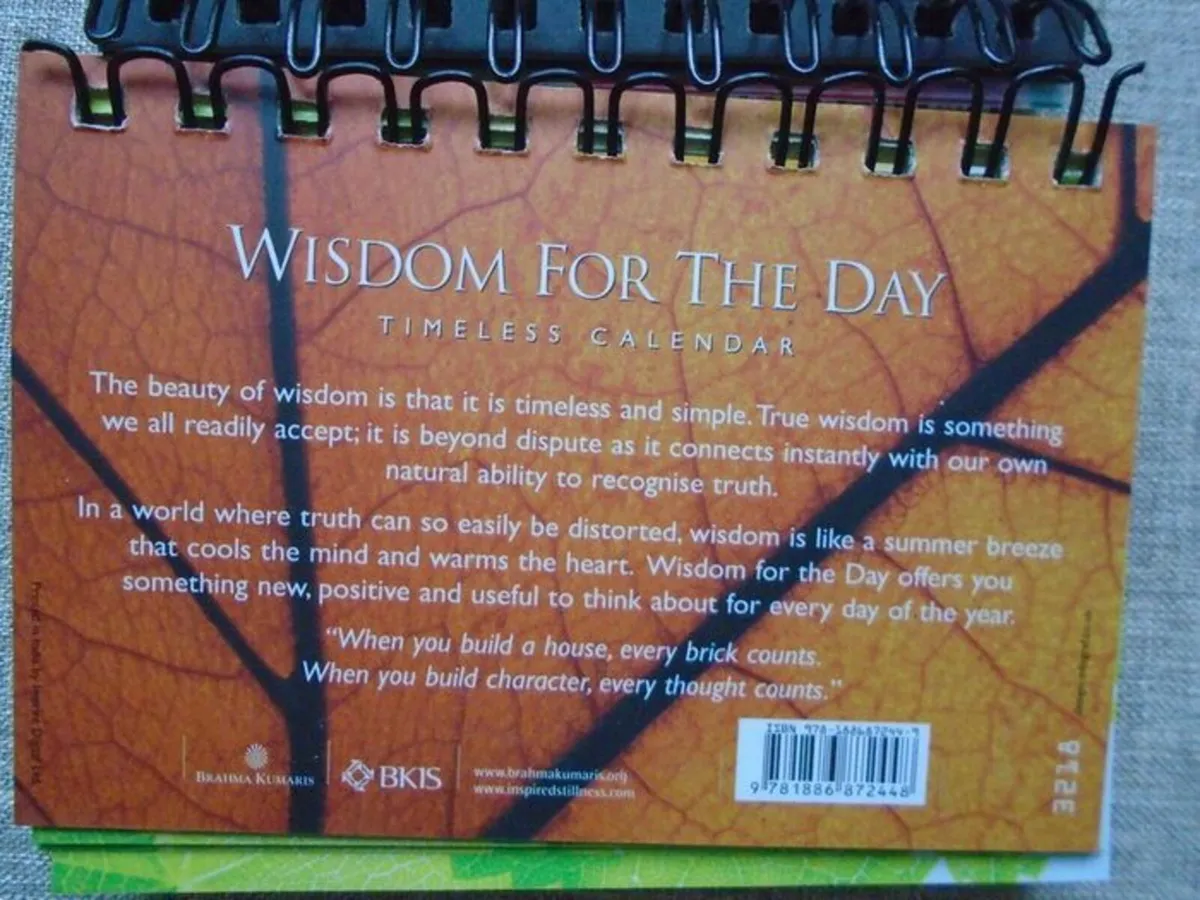 WISDOM FOR THE DAY
TIMELESS CALENDAR
The beauty of wisdom is that it is timeless and simple. True wisdom is something
we all readily accept; it is beyond dispute as it connects instantly with our own
natural ability to recognise truth.
In a world where truth can so easily be distorted, wisdom is like a summer breeze
that cools the mind and warms the heart. Wisdom for the Day offers you
something new, positive and useful to think about for every day of the year.
“When you build a house, every brick counts.
When you build character, every thought counts.”
BRAHMA KUMARIS
BKIS
www.brahmakumaris.org
www.inspiredstillness.com
ISBN 978-188687244-9
9 781886 872448
Printed in India by